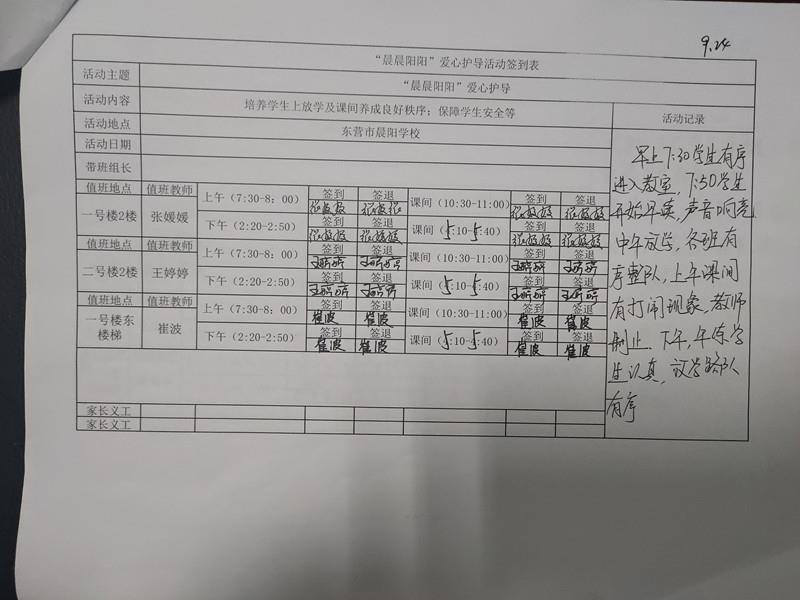 9.24
“晨晨阳阳”爱心护导活动签到表
活动主题 “晨晨阳阳”爱心护导
活动内容 培养学生上放学及课间养成良好秩序；保障学生安全等 活动记录
活动地点 东营市晨阳学校
活动日期
带班组长
值班地点 值班教师 上午（7:30-8：00） 签到 签退 课间（10:30-11:00） 签到 签退
张媛媛 张媛媛 张媛媛 张媛媛
一号楼2楼 张媛媛 下午（2:20-2:50） 签到 签退 课间（5:10-5:40） 签到 签退
张媛媛 张媛媛 张媛媛 张媛媛
值班地点 值班教师 上午（7:30-8：00） 签到 签退 课间（10:30-11:00） 签到 签退
王婷婷 王婷婷 王婷婷 王婷婷
二号楼2楼 王婷婷 下午（2:20-2:50） 签到 签退 课间（5:10-5:40） 签到 签退
王婷婷 王婷婷 王婷婷 王婷婷
值班地点 值班教师 上午（7:30-8：00） 签到 签退 课间（10:30-11:00） 签到 签退
崔波 崔波 崔波 崔波
一号楼东楼梯 崔波 下午（2:20-2:50） 签到 签退 课间（5:10-5:40） 签到 签退
崔波 崔波 崔波 崔波
家长义工
家长义工
早上7:30学生有序
进入教室，7:50学生
开始早读，声音响亮
中午放学，各班有
序整队，上午课间
有打闹现象，教师
制止。下午，午练学
生认真，放学路队
有序